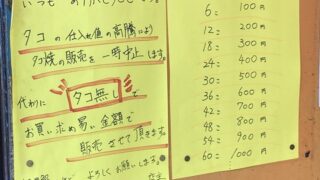 いつも
タコの仕入れ値の高騰により
タコ焼の販売を一時中止します。
代わりに
タコ無しで
お買い求め易い金額で
販売させて頂きます。
よろしくお願いします。
店主
6= 100円
12= 200円
18= 300円
24= 400円
30= 500円
36= 600円
42= 700円
48= 800円
54= 900円
60= 1000円